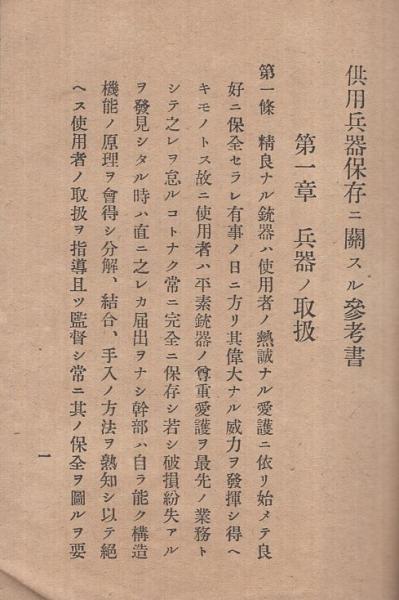 供用兵器保存ニ關スル參考書
第一章　兵器ノ取扱
第一條　精良ナル銃器ハ使用者ノ熱誠ナル愛護ニ依リ始メテ良
好ニ保全セラレ有事ノ日ニ方リ其偉大ナル威力ヲ發揮シ得ヘ
キモノトス故ニ使用者ハ平素銃器ノ尊重愛護ヲ最先ノ業務ト
シテ之レヲ怠ルコトナク常ニ完全ニ保存シ若シ破損紛失アル
ヲ發見シタル時ハ直ニ之レカ届出ヲナシ幹部ハ自ラ能ク構造
機能ノ原理ヲ會得シ分解、結合、手入ノ方法ヲ熟知シ以テ絶
ヘス使用者ノ取扱ヲ指導且ツ監督シ常ニ其ノ保全ヲ圖ルヲ要
一